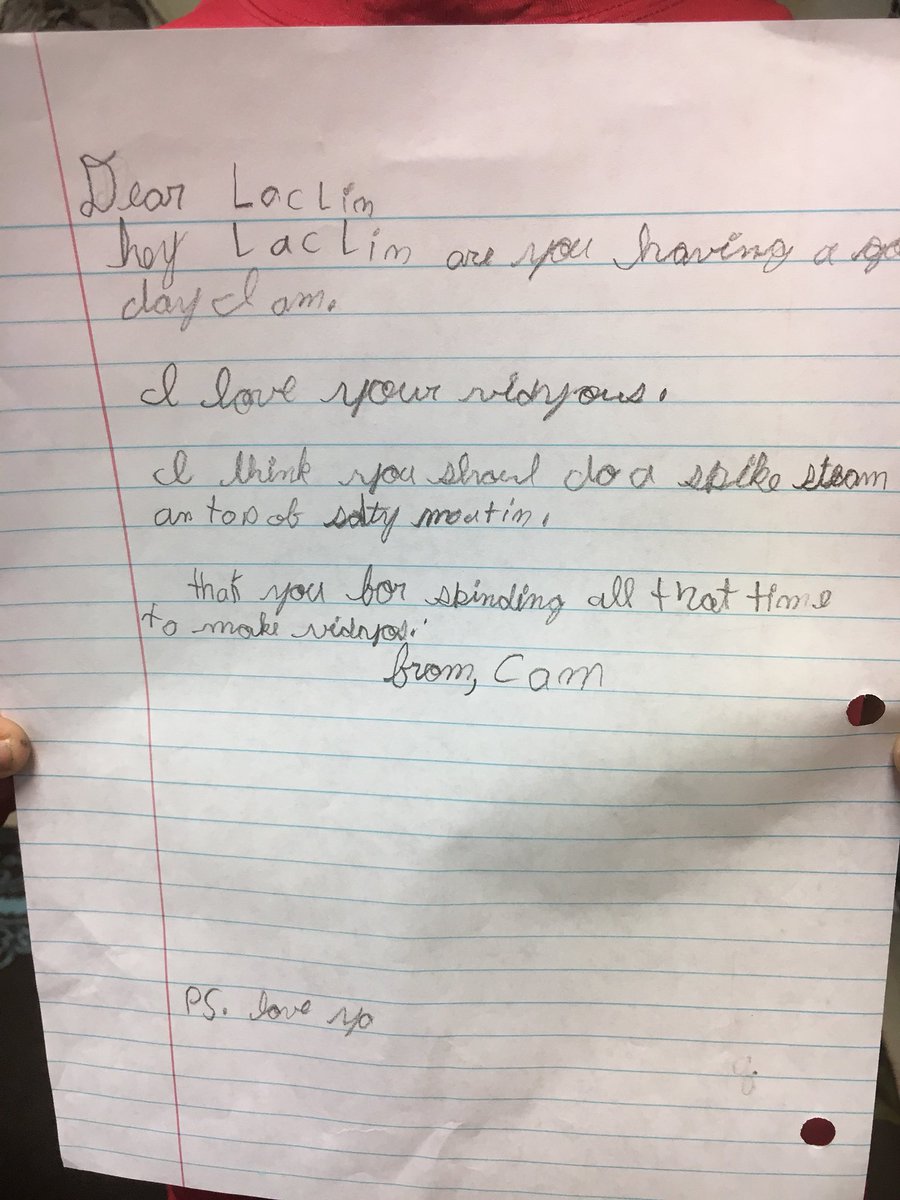 Dear Laclin
hey Laclin are you having a go
day I am.
I love your vidyous.
I think you shoul do a spike steam
an top of salty moutin.
thak you for spinding all that time
to make vidyos.
from, Cam
PS. love yo